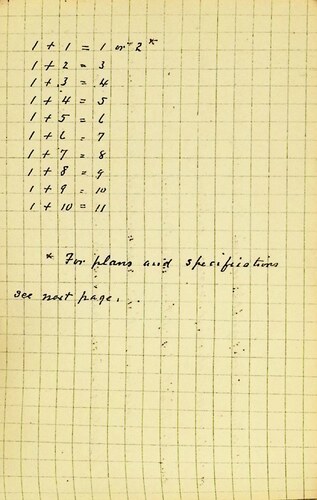 1 + 1 = 1 or 2*
1 + 2 = 3
1 + 3 = 4
1 + 4 = 5
1 + 5 = 6
1 + 6 = 7
1 + 7 = 8
1 + 8 = 9
1 + 9 = 10
1 + 10 = 11
* For plans and specifications
see next page.